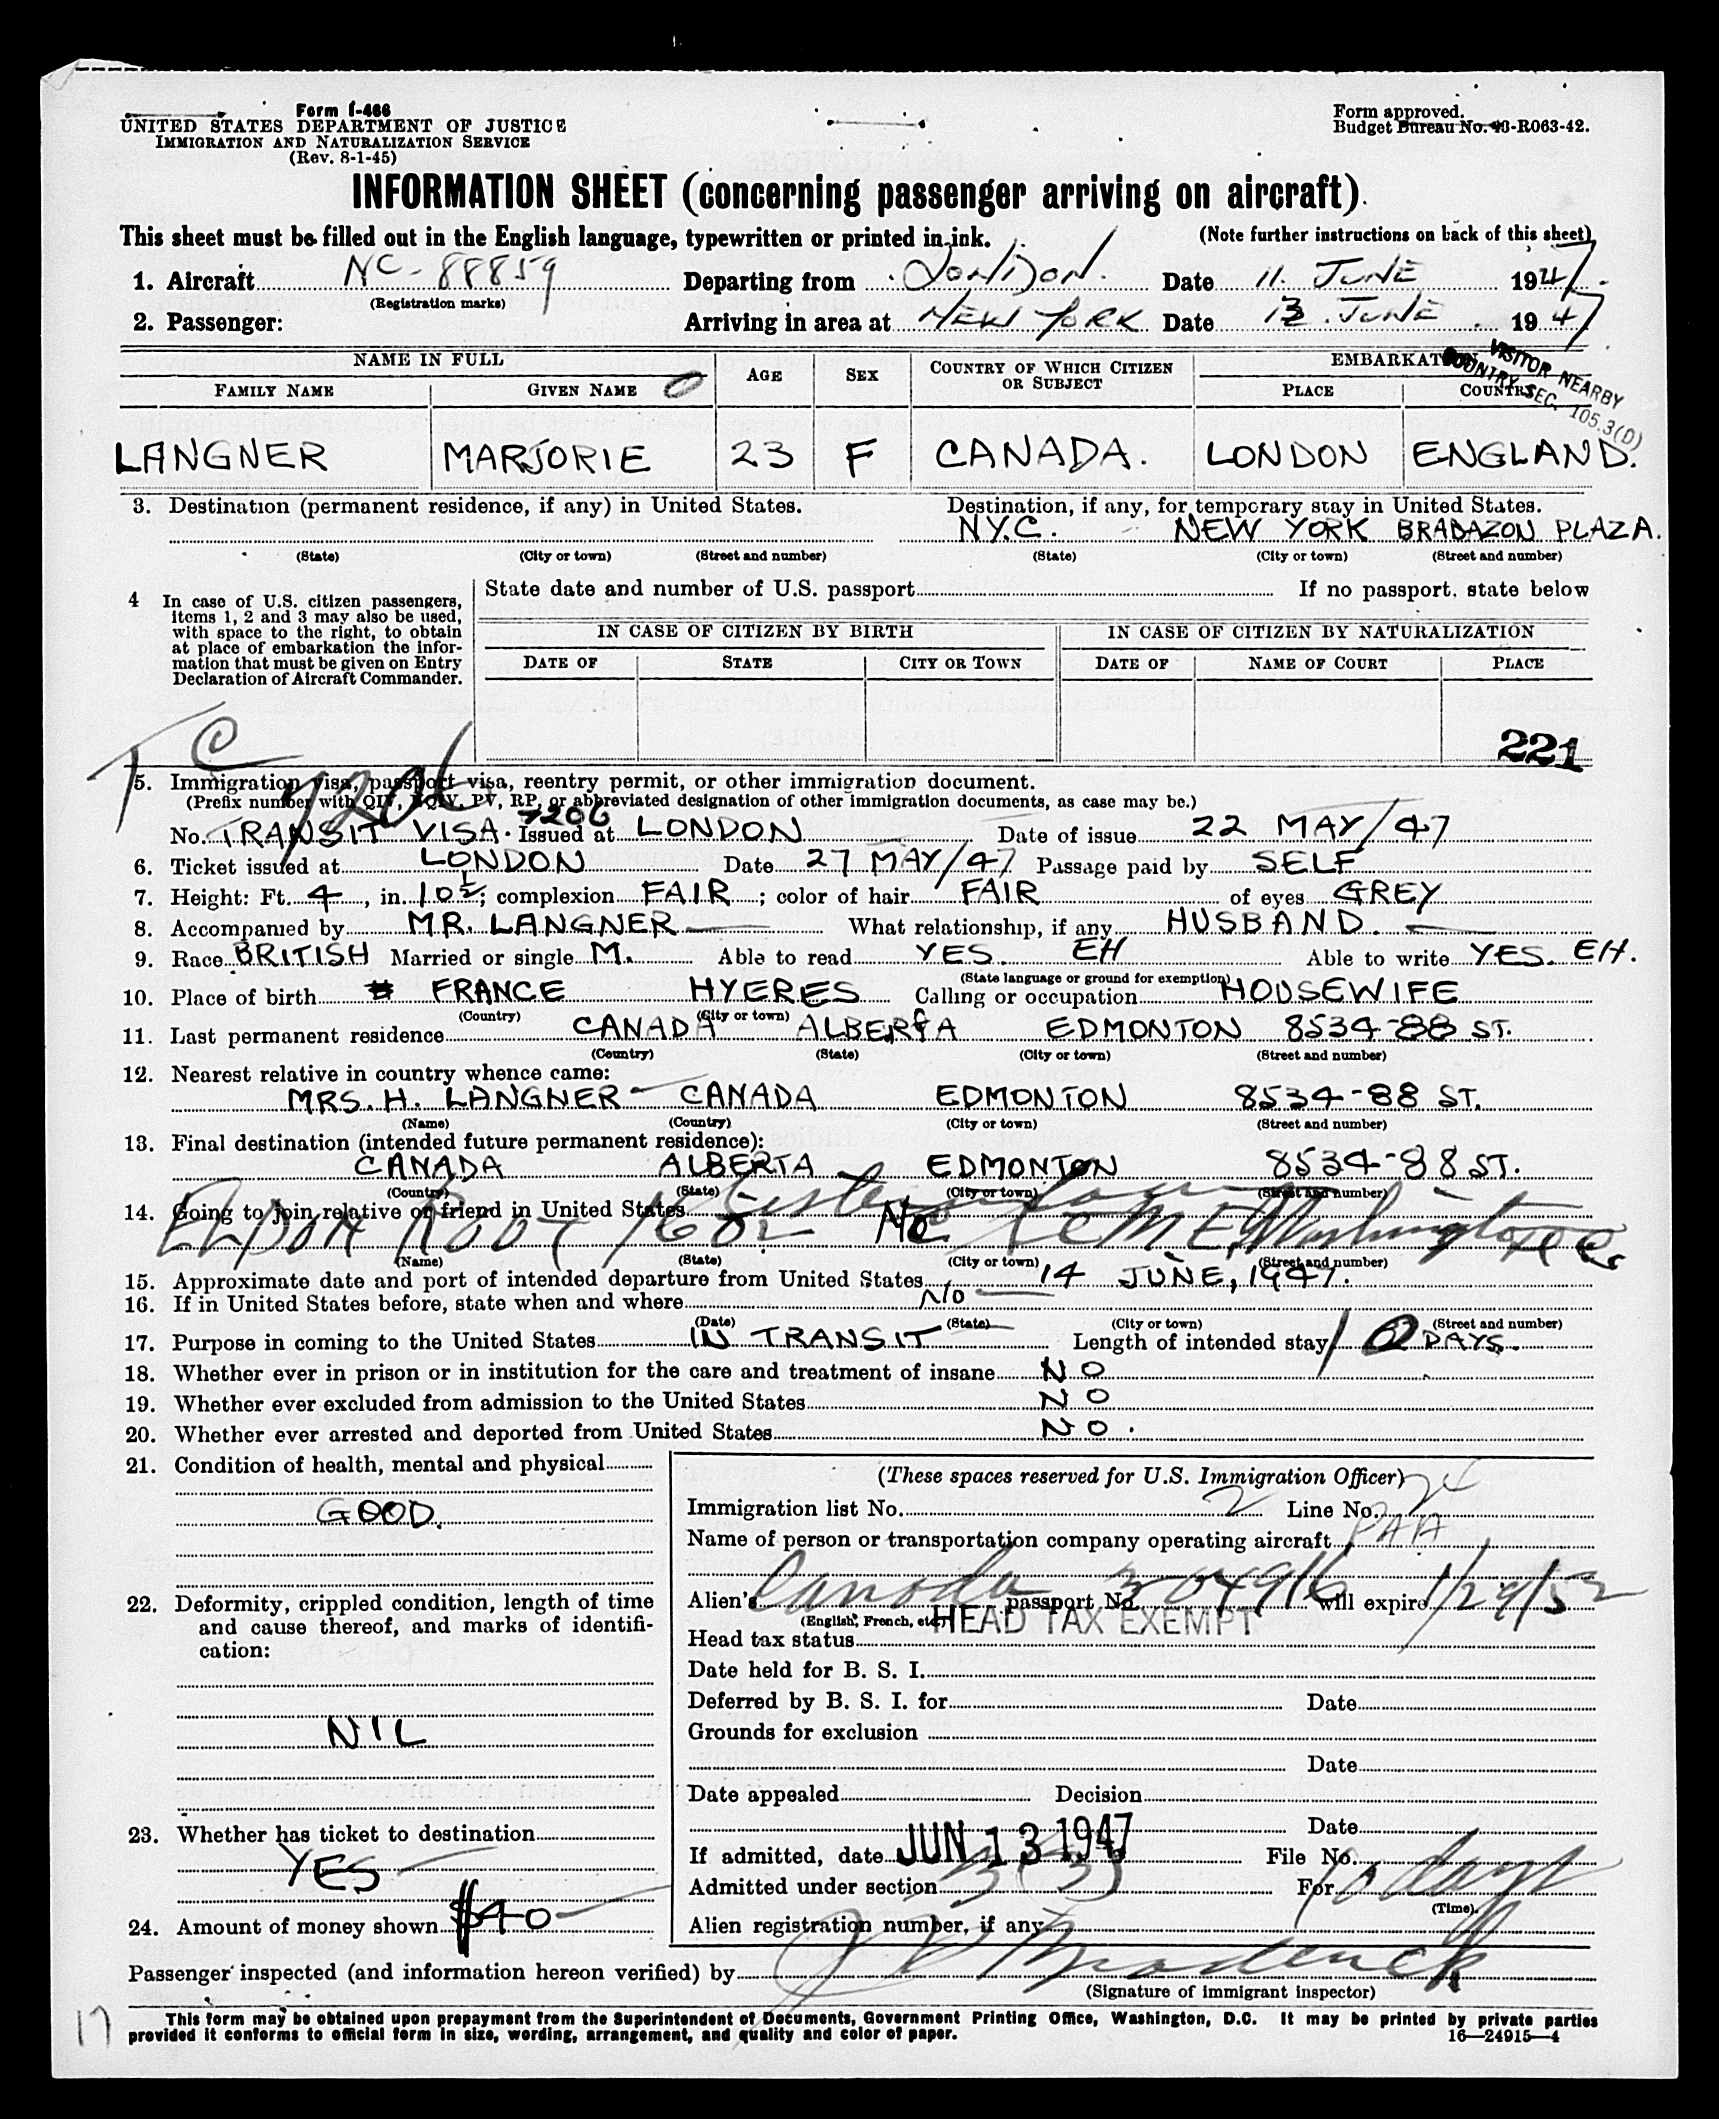 Form I-466
UNITED STATES DEPARTMENT OF JUSTICE
IMMIGRATION AND NATURALIZATION SERVICE
(Rev. 8-1-45)
Form approved.
Budget Bureau No. 43-R063-42.
INFORMATION SHEET (concerning passenger arriving on aircraft)
This sheet must be filled out in the English language, typewritten or printed in ink. (Note further instructions on back of this sheet)
1. Aircraft NC-88859 Departing from LONDON. Date 11. JUNE 1947.
(Registration marks)
2. Passenger: Arriving in area at NEW YORK Date 13. JUNE 1947
VISITOR NEARBY
COUNTRY SEC. 105.3(D)
NAME IN FULL AGE SEX COUNTRY OF WHICH CITIZEN OR SUBJECT EMBARKATION
FAMILY NAME GIVEN NAME PLACE COUNTRY
LANGNER MARJORIE 23 F CANADA. LONDON ENGLAND.
3. Destination (permanent residence, if any) in United States. Destination, if any, for temporary stay in United States.
N.Y.C. - NEW YORK BRADAZON PLAZA.
(State) (City or town) (Street and number) (State) (City or town) (Street and number)
4 In case of U.S. citizen passengers, items 1, 2 and 3 may also be used, with space to the right, to obtain at place of embarkation the information that must be given on Entry Declaration of Aircraft Commander.
State date and number of U.S. passport If no passport, state below
IN CASE OF CITIZEN BY BIRTH IN CASE OF CITIZEN BY NATURALIZATION
DATE OF STATE CITY OR TOWN DATE OF NAME OF COURT PLACE
221
T C 7206
5. Immigration visa, passport visa, reentry permit, or other immigration document.
(Prefix number with QIV, NQIV, PV, RP, or abbreviated designation of other immigration documents, as case may be.)
7206
No. TRANSIT VISA. Issued at LONDON Date of issue 22 MAY/47
6. Ticket issued at LONDON Date 27 MAY/47 Passage paid by SELF
7. Height: Ft. 4, in. 10½; complexion FAIR; color of hair FAIR of eyes GREY
8. Accompanied by MR. LANGNER What relationship, if any HUSBAND.
9. Race BRITISH Married or single M. Able to read YES. EH Able to write YES. EH.
(State language or ground for exemption)
10. Place of birth FRANCE HYERES Calling or occupation HOUSEWIFE
(Country) (City or town)
11. Last permanent residence CANADA ALBERTA EDMONTON 8534-88 ST.
(Country) (State) (City or town) (Street and number)
12. Nearest relative in country whence came:
MRS. H. LANGNER - CANADA EDMONTON 8534-88 ST.
(Name) (Country) (City or town) (Street and number)
13. Final destination (intended future permanent residence):
CANADA ALBERTA EDMONTON 8534-88 ST.
(Country) (State) (City or town) (Street and number)
14. Going to join relative or friend in United States
ELDON ROOT 1602 No Washington
(Name) (State) (City or town) (Street and number)
15. Approximate date and port of intended departure from United States 14 JUNE, 1947.
16. If in United States before, state when and where NO
(Date) (State) (City or town) (Street and number)
17. Purpose in coming to the United States IN TRANSIT Length of intended stay 10 DAYS.
18. Whether ever in prison or in institution for the care and treatment of insane NO
19. Whether ever excluded from admission to the United States NO
20. Whether ever arrested and deported from United States NO.
21. Condition of health, mental and physical
GOOD.
22. Deformity, crippled condition, length of time and cause thereof, and marks of identification:
NIL
23. Whether has ticket to destination
YES
24. Amount of money shown $40
(These spaces reserved for U.S. Immigration Officer)
Immigration list No. 2 Line No. 24
Name of person or transportation company operating aircraft PAA
Alien's Canada passport No. 304916 will expire 1/29/52
(English, French, etc.)
Head tax status HEAD TAX EXEMPT
Date held for B. S. I.
Deferred by B. S. I. for Date
Grounds for exclusion
Date
Date appealed Decision
Date
If admitted, date JUN 13 1947 File No.
Admitted under section 3(3) For 10 days
(Time)
Alien registration number, if any
Passenger inspected (and information hereon verified) by
(Signature of immigrant inspector)
17
This form may be obtained upon prepayment from the Superintendent of Documents, Government Printing Office, Washington, D.C. It may be printed by private parties
provided it conforms to official form in size, wording, arrangement, and quality and color of paper. 16—24915-4